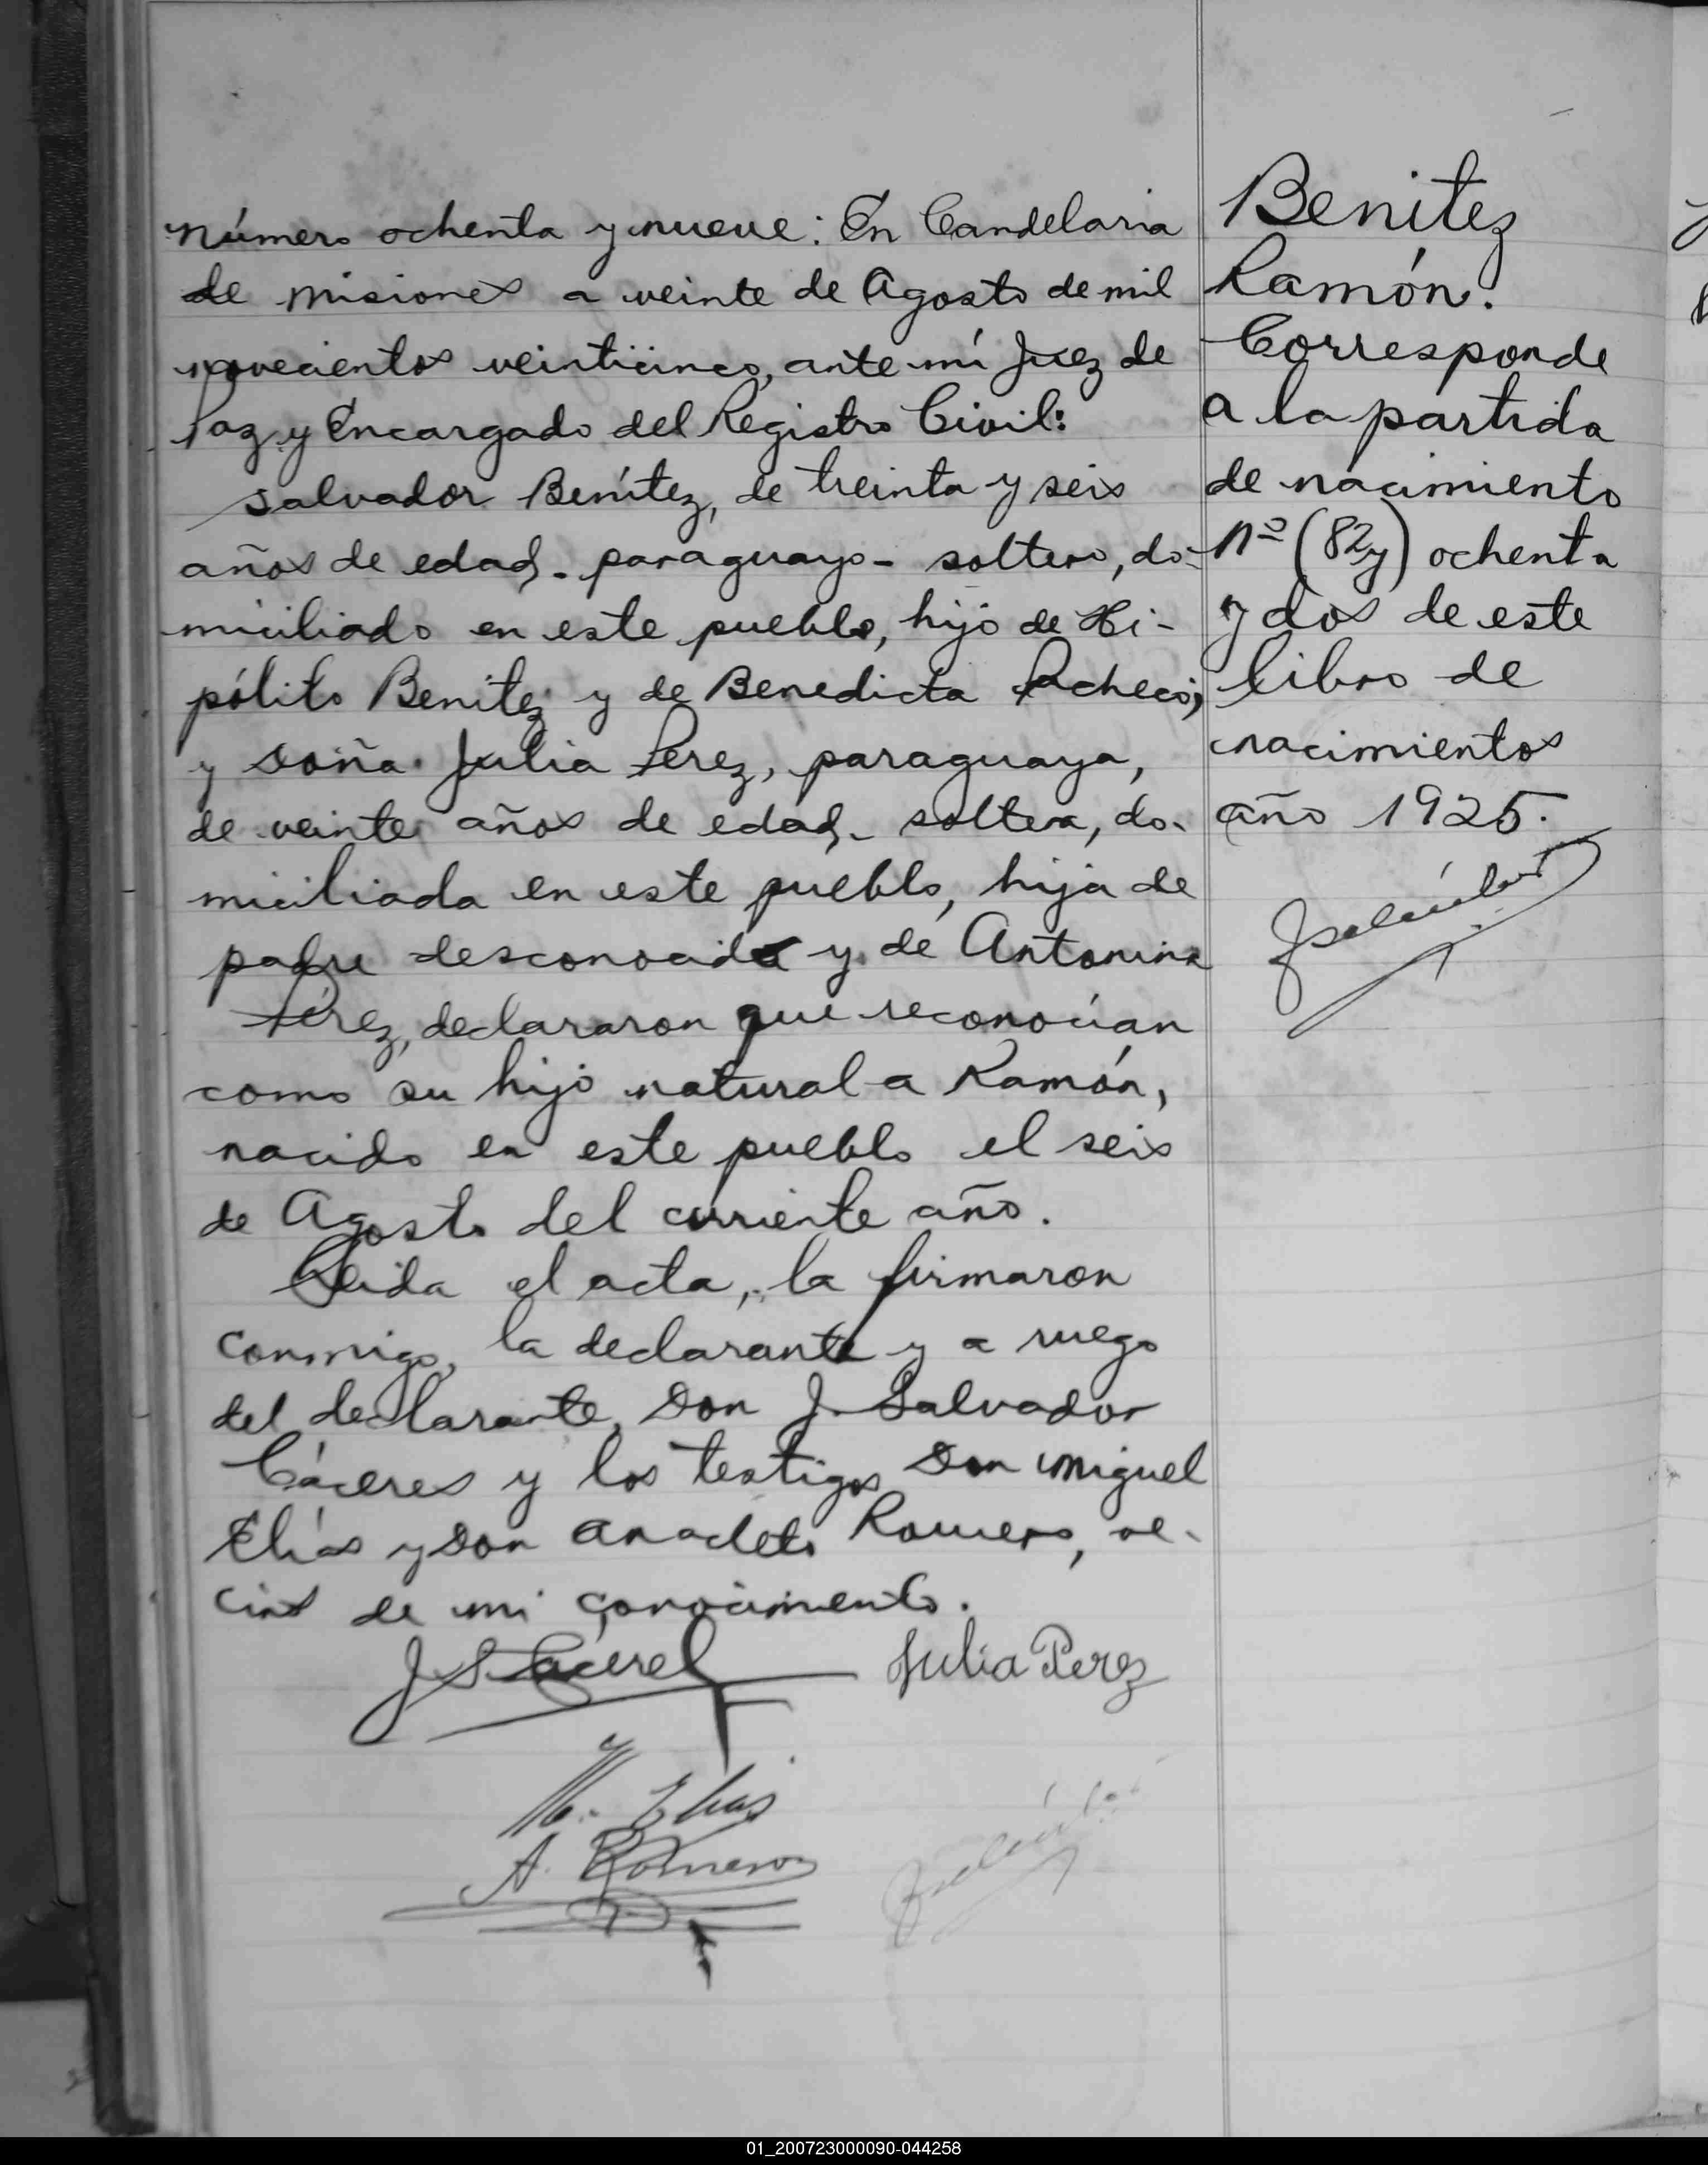 Número ochenta y nueve: En Candelaria
de Misiones a veinte de Agosto de mil
novecientos veinticinco, ante mí Juez de
Paz y Encargado del Registro Civil:
Salvador Benítez, de treinta y seis
años de edad - paraguayo - soltero, do-
miciliado en este pueblo, hijo de Hi-
pólito Benitez y de Benedicta Pacheco,
y Doña Julia Perez, paraguaya,
de veinte años de edad - soltera, do-
miciliada en este pueblo, hija de
padre desconocido y de Antonina
Pérez, declararon que reconocían
como su hijo natural a Ramón,
nacido en este pueblo el seis
de Agosto del corriente año.
Leida el acta, la firmaron
conmigo, la declarante y a ruego
del declarante, Don J. Salvador
Cáceres y los testigos Don Miguel
Elías y Don Anacleto Romero, ve-
cinos de mi conocimiento.
J. S. Cáceres Julia Perez
M. Elias
A. Romero
Benitez
Ramón.
Corresponde
a la partida
de nacimiento
Nº (82) ochenta
y dos de este
libro de
nacimientos
año 1925.
01_200723000090-044258